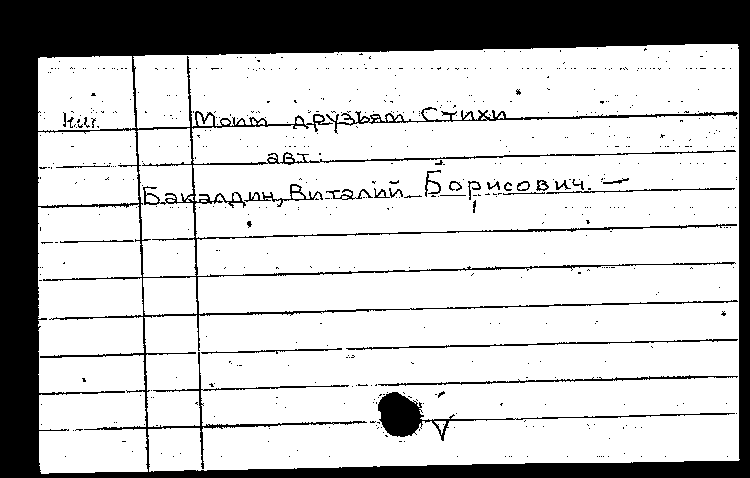 кн. Моим друзьям. Стихи
авт.:
Бакалдин, Виталий Борисович. —